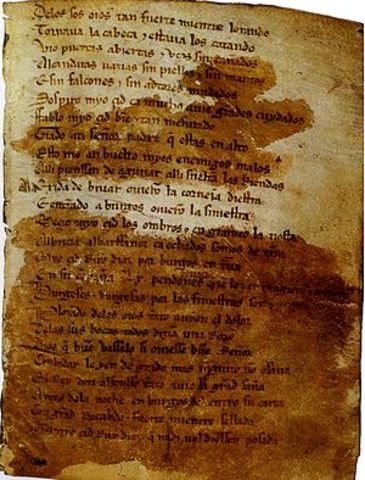 Delos sos oios tan fuerte mientre lorando
Tornaua la cabeça & estaua los catando
Vio puertas abiertas & vços sin cañados
Alcandaras uazias sin pielles & sin mantos
E sin falcones & sin adtores mudados
Sospiro myo çid ca mucho auie grãdes cuydados
Fablo myo çid biẽ & tan mesurado
Grado ati señor padre q̃ estas en alto
Esto me an buelto myos enemigos malos
Alli pienssan de aguiiar alli sueltã las Riendas
Ala exida de biuar ouierõ la corneia diestra
E entrãdo a burgos ouierõ la siniestra
Meçio myo çid los ombros & en grameo la tiesta
Albricia albarffanez ca echados somos de tierra
Myo çid Ruy diaz por burgos en traua
En su conpaña .Lx. pendones
Burgeses & burgesas por las finiestras son
Plorãdo delos oios tãto auien el dolor
Delas sus bocas todos dizian una Razõ
Dios q̃ buẽ vassalo si ouiesse buẽ Señor
Conbidar le yen de grado mas ninguno nõ osaua
El Rey don alfonsso tãto auie la grãd saña
Antes dela noche en burgos del entro su carta
Con grãd Recabdo & fuerte mientre sellada
çid Ruy diaz q̃ nadi nol diessen posada